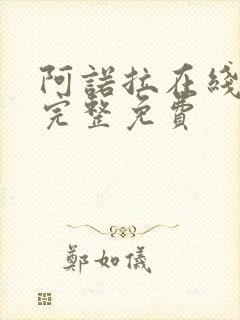 阿諾拉在綫
完整免費
鄭如儀